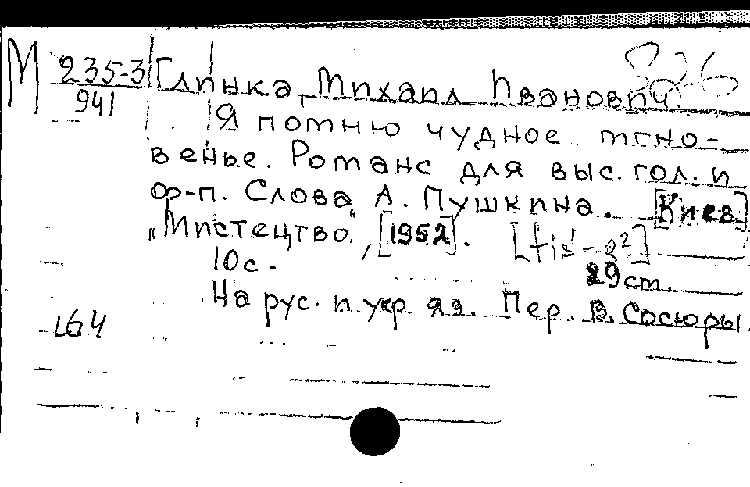 М 235-3/941
Глинка, Михаил Иванович
Я помню чудное мгно-
венье. Романс для выс. гол. и
ф-п. Слова А. Пушкина. [Киев]
„Мистецтво", [1952].
10 с. 29 см.
На рус. и укр. яз. Пер. В. Сосюры.
164